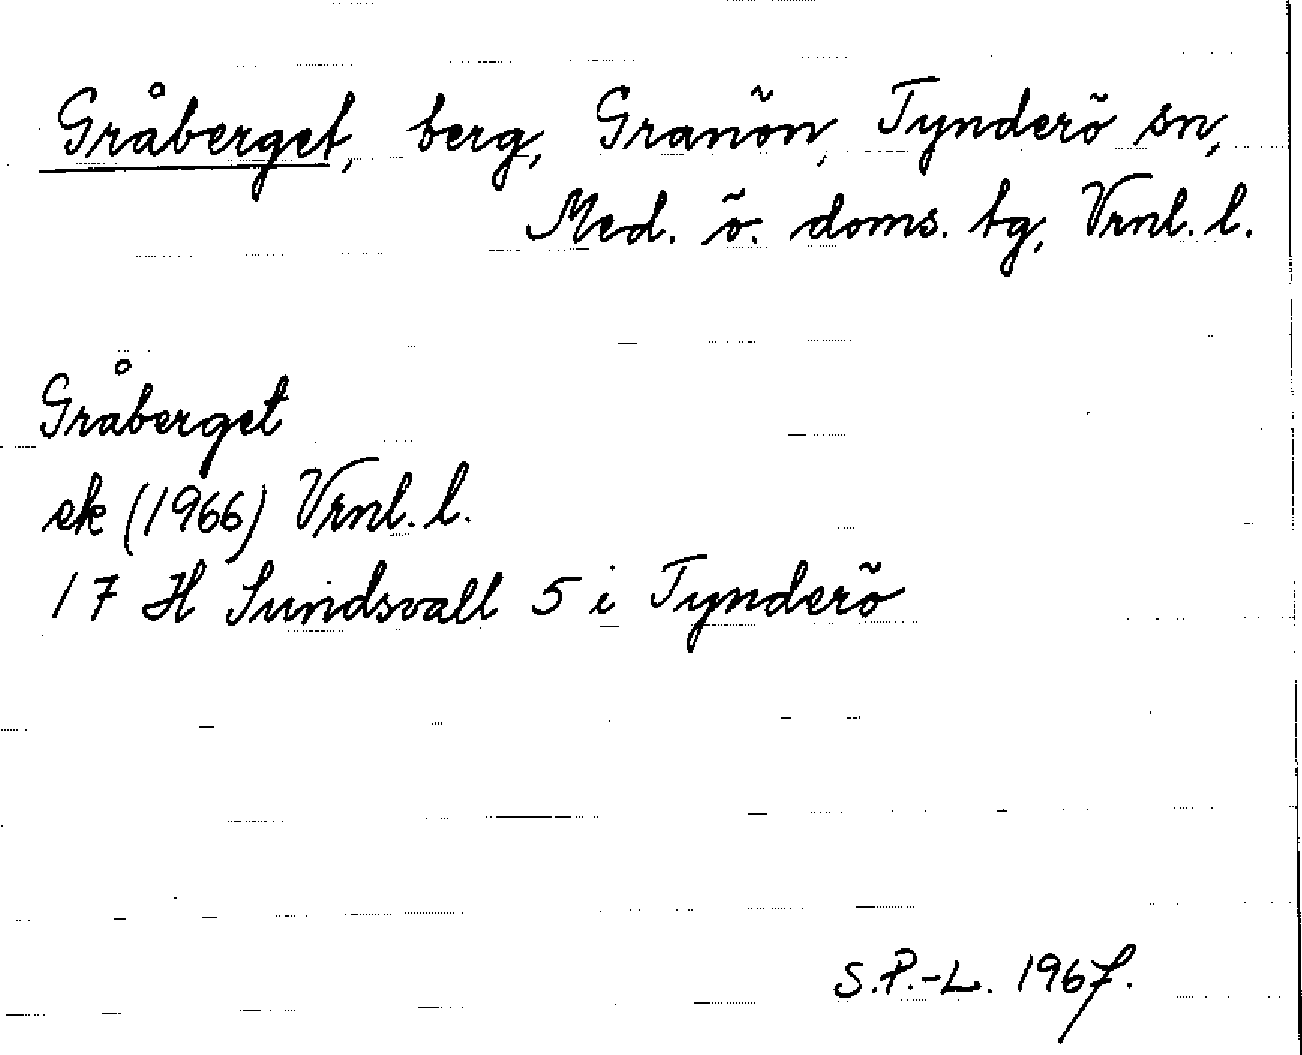 Gråberget, berg, Granön, Tynderö sn,
Med. ö. doms. tg, Vrnl. l.
Gråberget
ek (1966) Vrnl. l.
17 H Sundsvall 5 i Tynderö
S.P.-L. 1967.